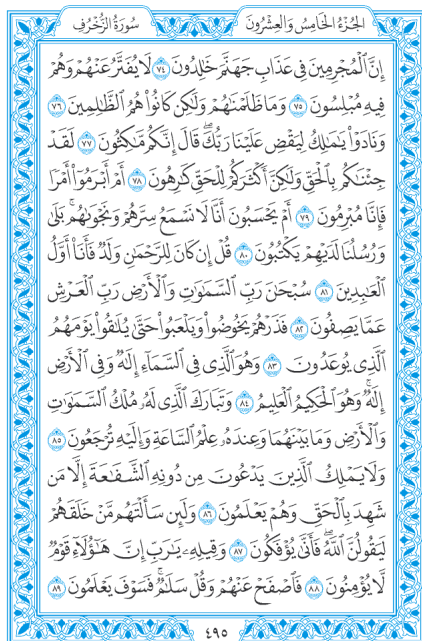 سُورَةُ الزُّخْرُفِ
الجُزْءُ الخَامِسُ وَالعِشْرُونَ
إِنَّ ٱلْمُجْرِمِينَ فِى عَذَابِ جَهَنَّمَ خَٰلِدُونَ ٧٤ لَا يُفَتَّرُ عَنْهُمْ وَهُمْ
فِيهِ مُبْلِسُونَ ٧٥ وَمَا ظَلَمْنَٰهُمْ وَلَٰكِن كَانُوا۟ هُمُ ٱلظَّٰلِمِينَ ٧٦
وَنَادَوْا۟ يَٰمَٰلِكُ لِيَقْضِ عَلَيْنَا رَبُّكَ ۖ قَالَ إِنَّكُم مَّٰكِثُونَ ٧٧ لَقَدْ
جِئْنَٰكُم بِٱلْحَقِّ وَلَٰكِنَّ أَكْثَرَكُمْ لِلْحَقِّ كَٰرِهُونَ ٧٨ أَمْ أَبْرَمُوٓا۟ أَمْرًا
فَإِنَّا مُبْرِمُونَ ٧٩ أَمْ يَحْسَبُونَ أَنَّا لَا نَسْمَعُ سِرَّهُمْ وَنَجْوَىٰهُم ۚ بَلَىٰ
وَرُسُلُنَا لَدَيْهِمْ يَكْتُبُونَ ٨٠ قُلْ إِن كَانَ لِلرَّحْمَٰنِ وَلَدٌ فَأَنَا۠ أَوَّلُ
ٱلْعَٰبِدِينَ ٨١ سُبْحَٰنَ رَبِّ ٱلسَّمَٰوَٰتِ وَٱلْأَرْضِ رَبِّ ٱلْعَرْشِ
عَمَّا يَصِفُونَ ٨٢ فَذَرْهُمْ يَخُوضُوا۟ وَيَلْعَبُوا۟ حَتَّىٰ يُلَٰقُوا۟ يَوْمَهُمُ
ٱلَّذِى يُوعَدُونَ ٨٣ وَهُوَ ٱلَّذِى فِى ٱلسَّمَآءِ إِلَٰهٌ وَفِى ٱلْأَرْضِ
إِلَٰهٌ ۚ وَهُوَ ٱلْحَكِيمُ ٱلْعَلِيمُ ٨٤ وَتَبَارَكَ ٱلَّذِى لَهُۥ مُلْكُ ٱلسَّمَٰوَٰتِ
وَٱلْأَرْضِ وَمَا بَيْنَهُمَا وَعِندَهُۥ عِلْمُ ٱلسَّاعَةِ وَإِلَيْهِ تُرْجَعُونَ ٨٥
وَلَا يَمْلِكُ ٱلَّذِينَ يَدْعُونَ مِن دُونِهِ ٱلشَّفَٰعَةَ إِلَّا مَن
شَهِدَ بِٱلْحَقِّ وَهُمْ يَعْلَمُونَ ٨٦ وَلَئِن سَأَلْتَهُم مَّنْ خَلَقَهُمْ
لَيَقُولُنَّ ٱللَّهُ ۖ فَأَنَّىٰ يُؤْفَكُونَ ٨٧ وَقِيلِهِۦ يَٰرَبِّ إِنَّ هَٰٓؤُلَآءِ قَوْمٌ
لَّا يُؤْمِنُونَ ٨٨ فَٱصْفَحْ عَنْهُمْ وَقُلْ سَلَٰمٌ ۚ فَسَوْفَ يَعْلَمُونَ ٨٩
٤٩٥